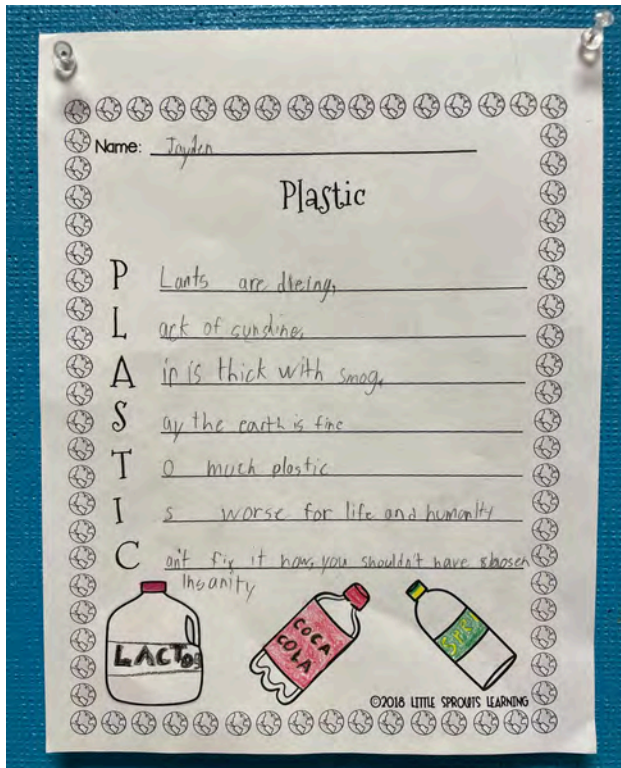 Name: Jayden
Plastic
P Lants are dieing,
L ack of sunshine,
A ir is thick with smog,
S ay the earth is fine
T o much plastic
I s worse for life and humanity
C an't fix it now, you shouldn't have choosen
insanity
LACTOS
COCA
COLA
SPRI
©2018 LITTLE SPROUTS LEARNING